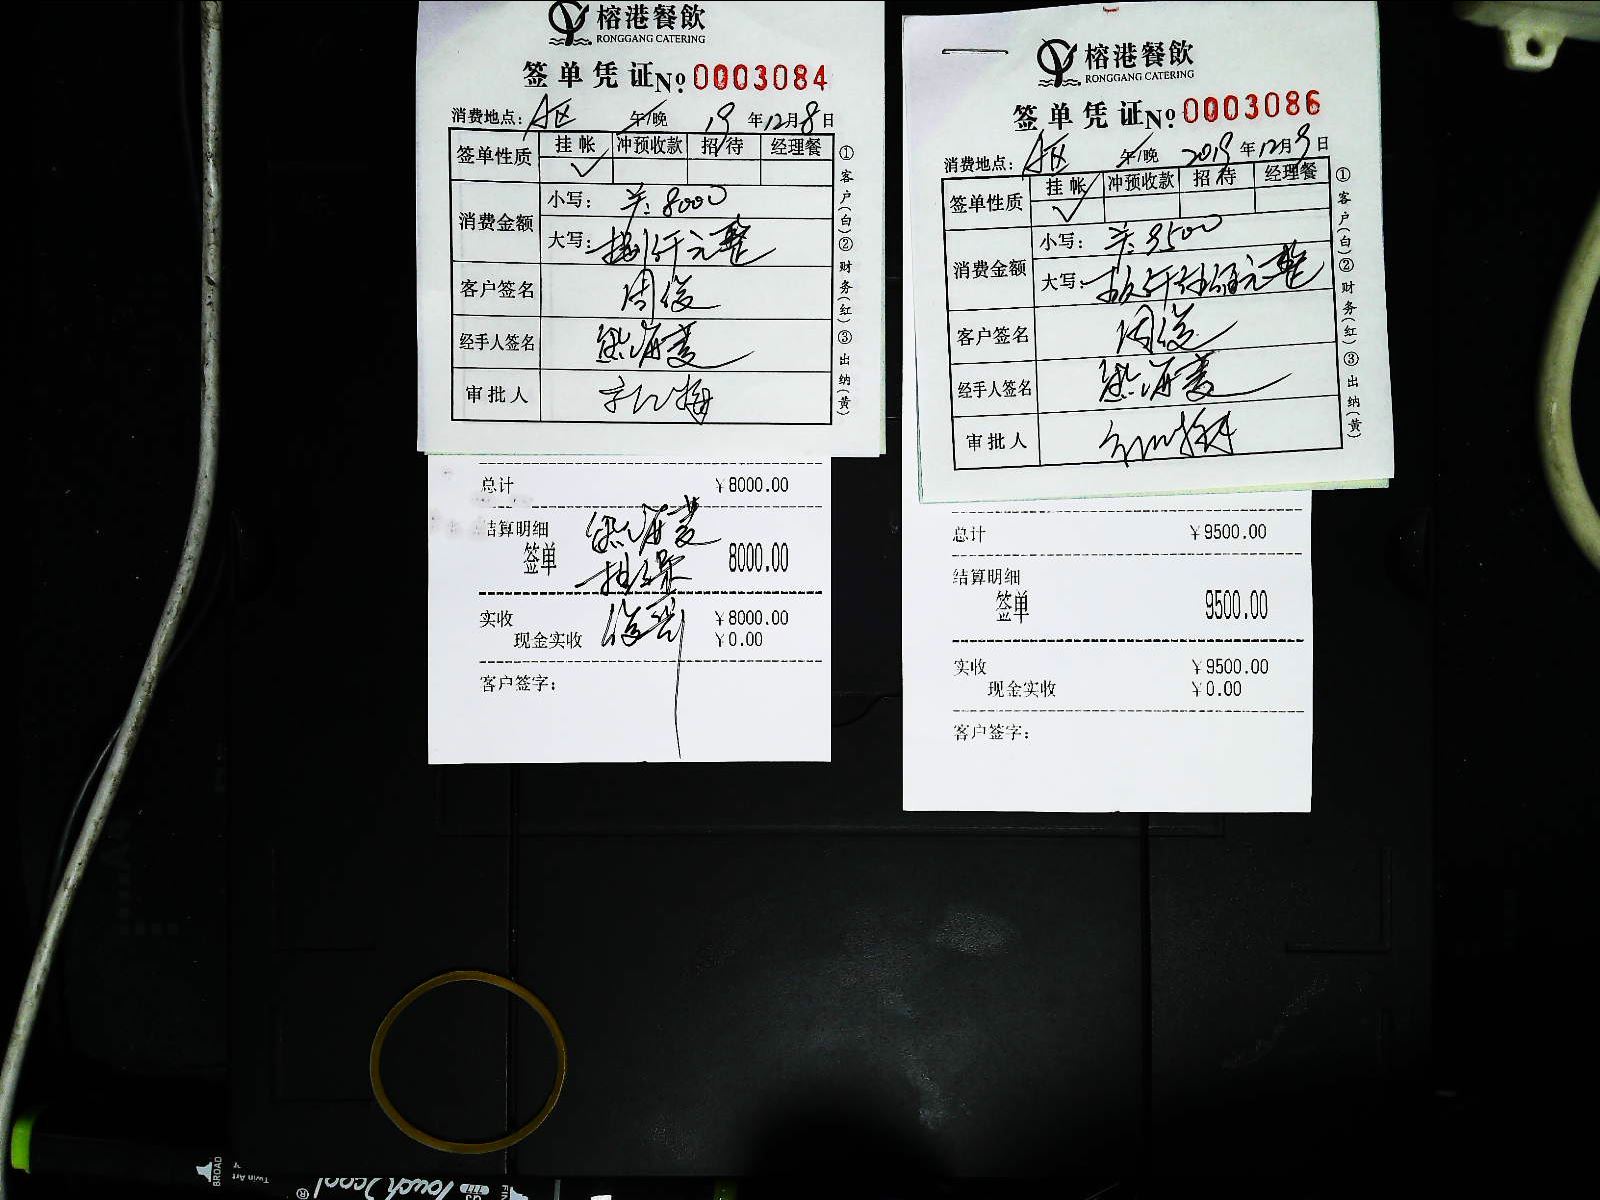 榕港餐飲
RONGGANG CATERING
签单凭证 No: 0003084
消费地点: A区 午/晚 19年12月8日
签单性质 挂帐 冲预收款 招待 经理餐
✓
消费金额 小写: 8000
大写: 捌仟元整
客户签名 周俊
经手人签名 熊海菱
审批人
①客户(白)②财务(红)③出纳(黄)
总计 ¥8000.00
结算明细 熊海菱
签单 担保 8000.00
实收 ¥8000.00
现金实收 ¥0.00
客户签字:
榕港餐飲
RONGGANG CATERING
签单凭证 No: 0003086
消费地点: A区 午/晚 2019年12月9日
签单性质 挂帐 冲预收款 招待 经理餐
✓
消费金额 小写: 9500
大写: 玖仟伍佰元整
客户签名 周俊
经手人签名 熊海菱
审批人
①客户(白)②财务(红)③出纳(黄)
总计 ¥9500.00
结算明细
签单 9500.00
实收 ¥9500.00
现金实收 ¥0.00
客户签字:
BROAD
Twin Art
Touch2cool®